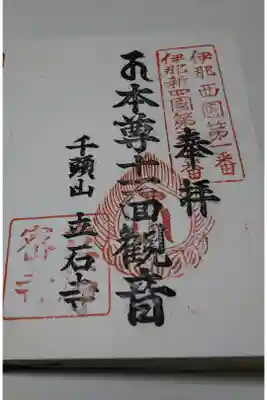 伊那西國第一番
伊那新四國第 番
奉拝
本尊十一面觀音
千頭山
立石寺